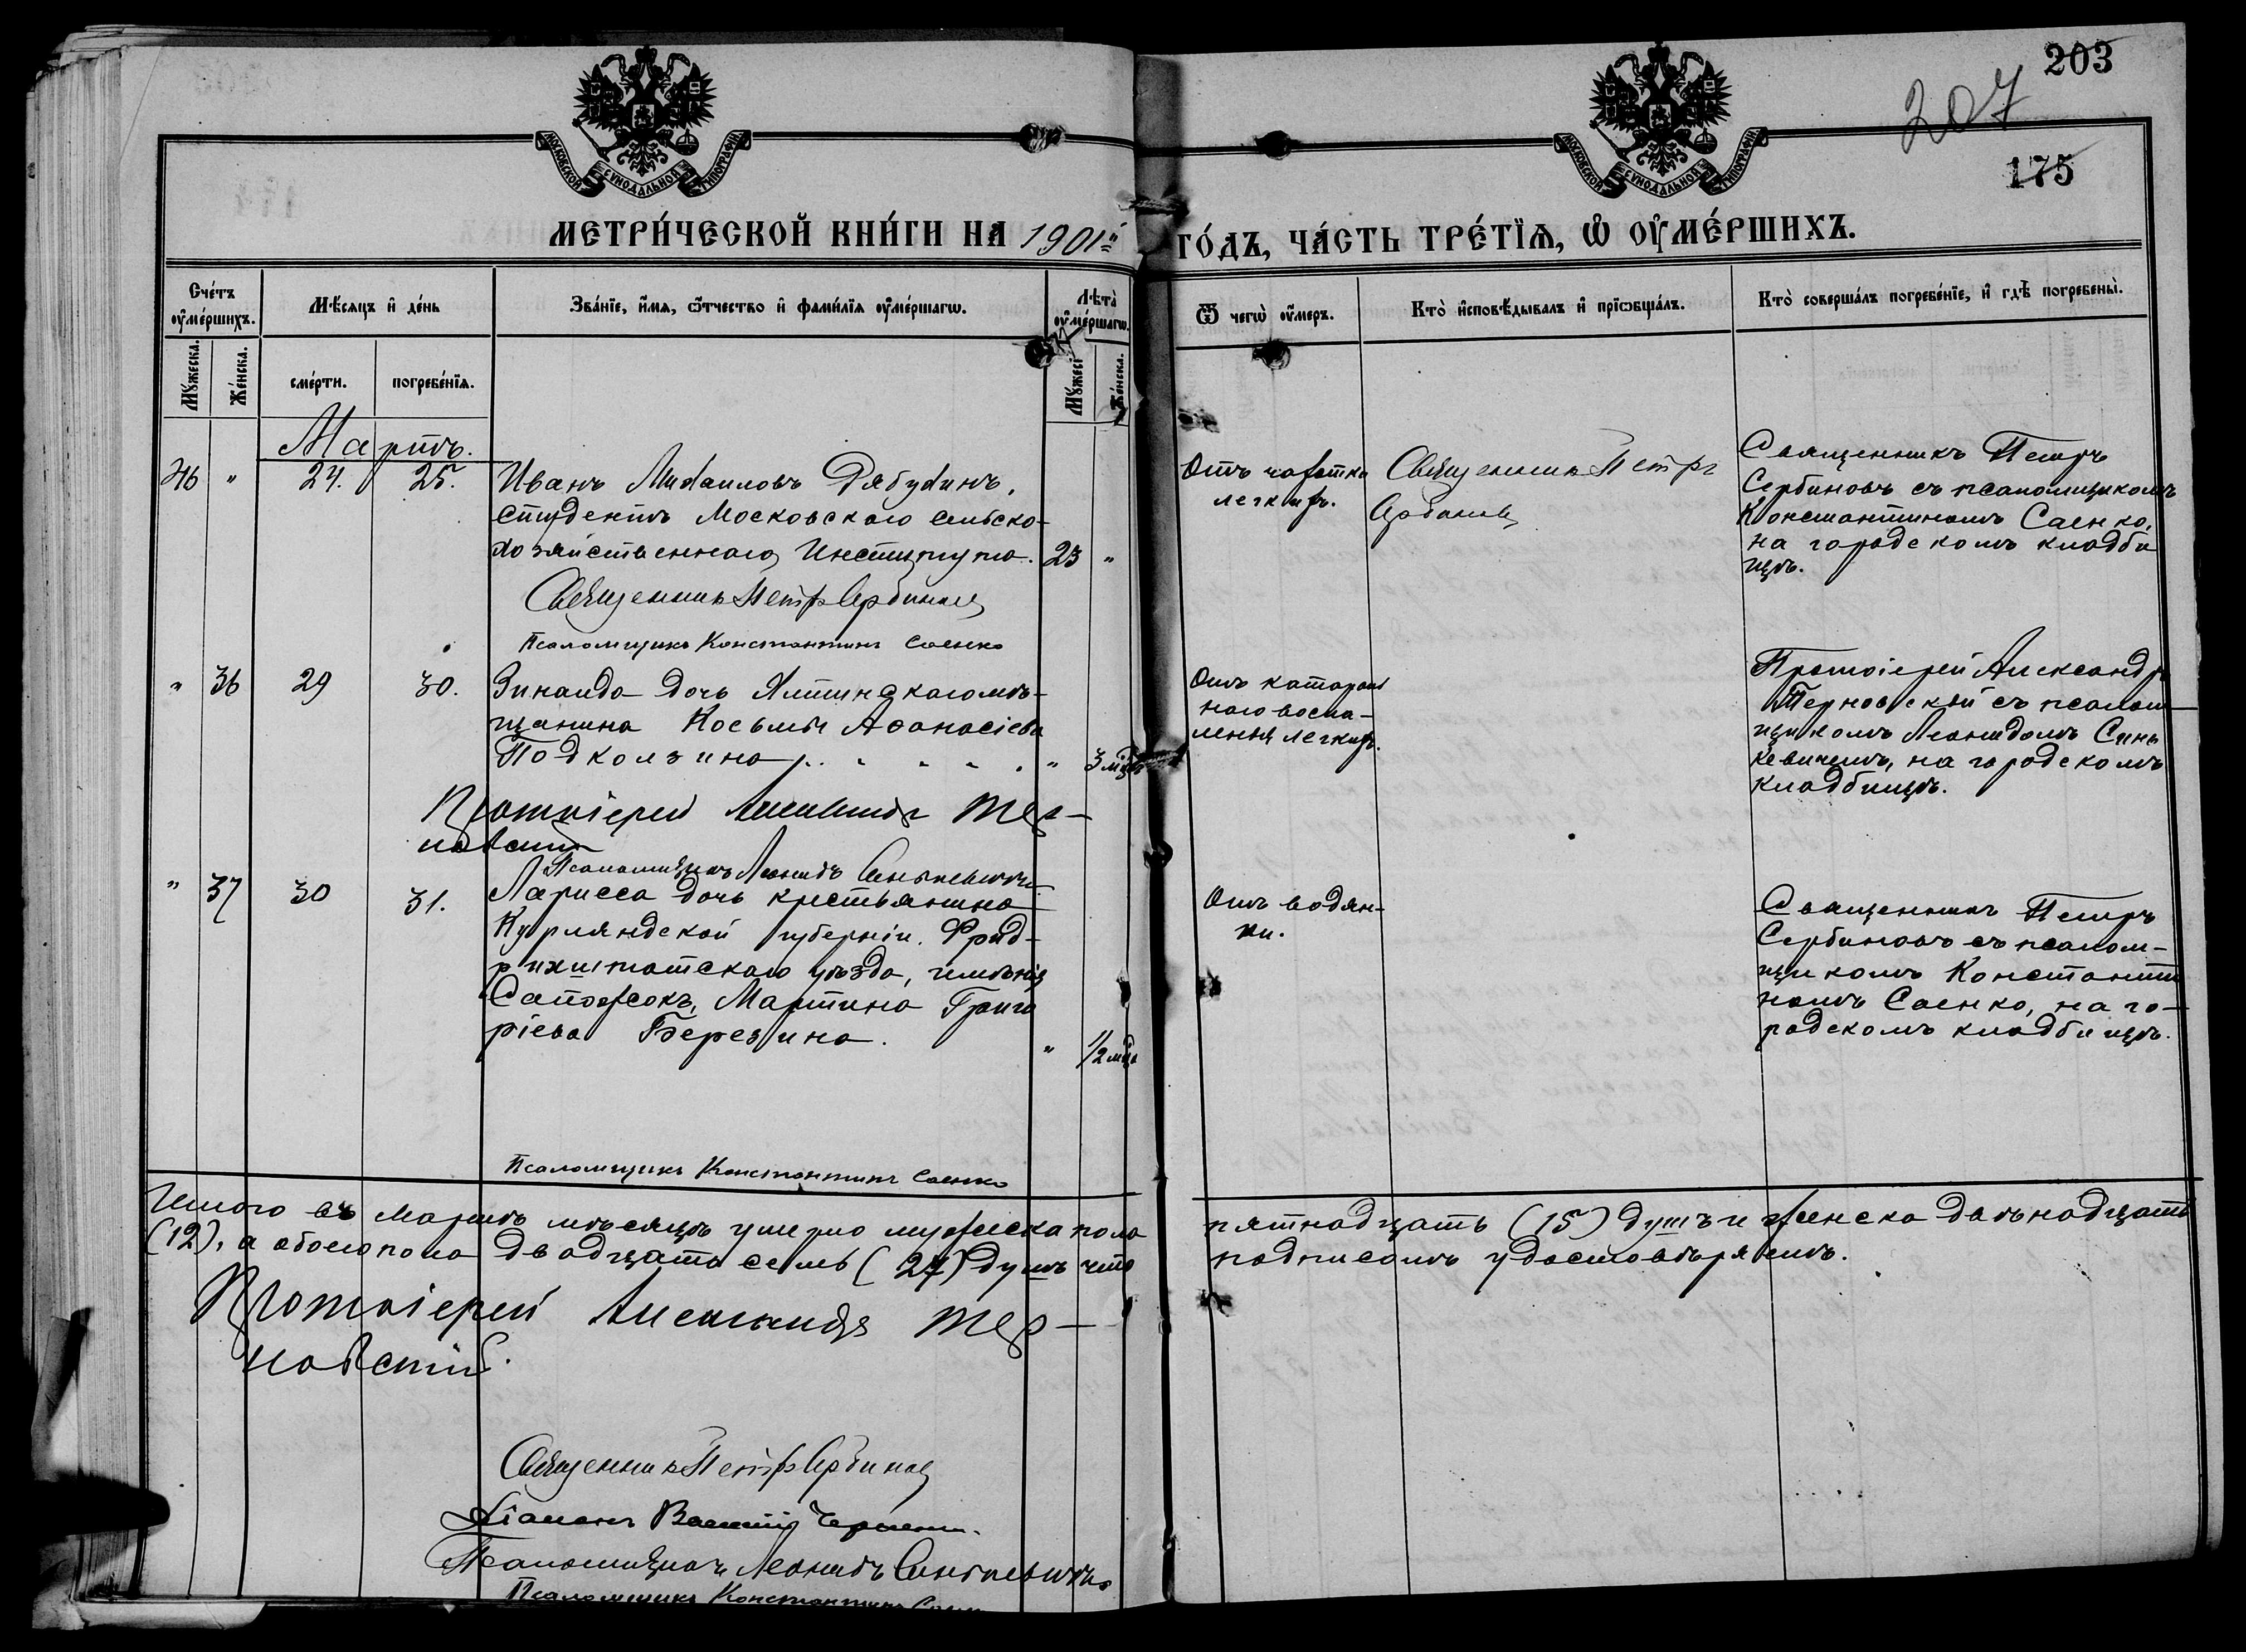 203
207
175
МОСКОВСКОЙ СѴНОДАЛЬНОЙ ТИПОГРАФІИ
МОСКОВСКОЙ СѴНОДАЛЬНОЙ ТИПОГРАФІИ
МЕТРИ́ЧЕСКОЙ КНИ́ГИ НА 1901й ГО́ДЪ, ЧА́СТЬ ТРЕ́ТЇѦ, Ѡ҆ ОУ҆МЕ́РШИХЪ.
Сче́тъ оу҆ме́ршихъ.
Мꙋ́жеска.
Же́нска.
Мѣ́сяцъ и҆ де́нь
сме́рти.
погребе́нїѧ.
Зва́нїе, и҆́мѧ, ѻ҆́тчество и҆ фами́лїѧ оу҆ме́ршагѡ.
Лѣ́та оу҆ме́ршагѡ.
Мꙋ́жеск.
Же́нска.
Ѿ чегѡ̀ оу҆́меръ.
Кто̀ и҆сповѣ́дывалъ и҆ прїѡбща́лъ.
Кто̀ соверша́лъ погребе́нїе, и҆ гдѣ̀ погребены̀.
Мартъ.
" 24. 25.
Иванъ Михаиловъ Дябухинъ,
студентъ Московского сельско-
хозяйственнаго Института. 23 "
Священникъ Петръ Сербиновъ
Псаломщикъ Константинъ Саенко
Отъ чахотки
легкихъ.
Священникъ Петръ
Сербиновъ
Священникъ Петръ
Сербиновъ съ псаломщикомъ
Константиномъ Саенко,
на городскомъ кладби
щѣ.
" 36 29 30.
Зинаида дочь Ялтинскаго мѣ-
щанина Косьмы Аѳанасіева
Подколзина " 3 мѣс
Протоіерей Александръ Тер-
новскій
Псаломщикъ Леонидъ Синькевичъ
Отъ катарал
наго воспа-
ленія легкихъ.
Протоіерей Александръ
Терновскій съ псалом-
щикомъ Леонидомъ Синь
кевичемъ, на городскомъ
кладбищѣ.
" 37 30 31.
Ларисса дочь крестьянина
Курляндской губерніи. Фрид-
рихштатскаго уѣзда, имѣнія
Сапожокъ, Мартина Григо
ріева Березина. " 1/2 мѣс
Псаломщикъ Константинъ Саенко
Отъ водян-
ки.
Священникъ Петръ
Сербиновъ съ псалом-
щикомъ Константи
номъ Саенко, на го-
родскомъ кладбищѣ.
Итого въ Мартѣ мѣсяцѣ умерло мужеска пола пятнадцать (15) душъ и женска двѣнадцать
(12), а обоего пола двадцать семь (27) душъ что подписомъ удостовѣряемъ.
Протоіерей Александръ Тер-
новскій.
Священникъ Петръ Сербиновъ
Діаконъ Василій
Псаломщикъ Леонидъ Синькевичъ
Псаломщикъ Константинъ Саенко